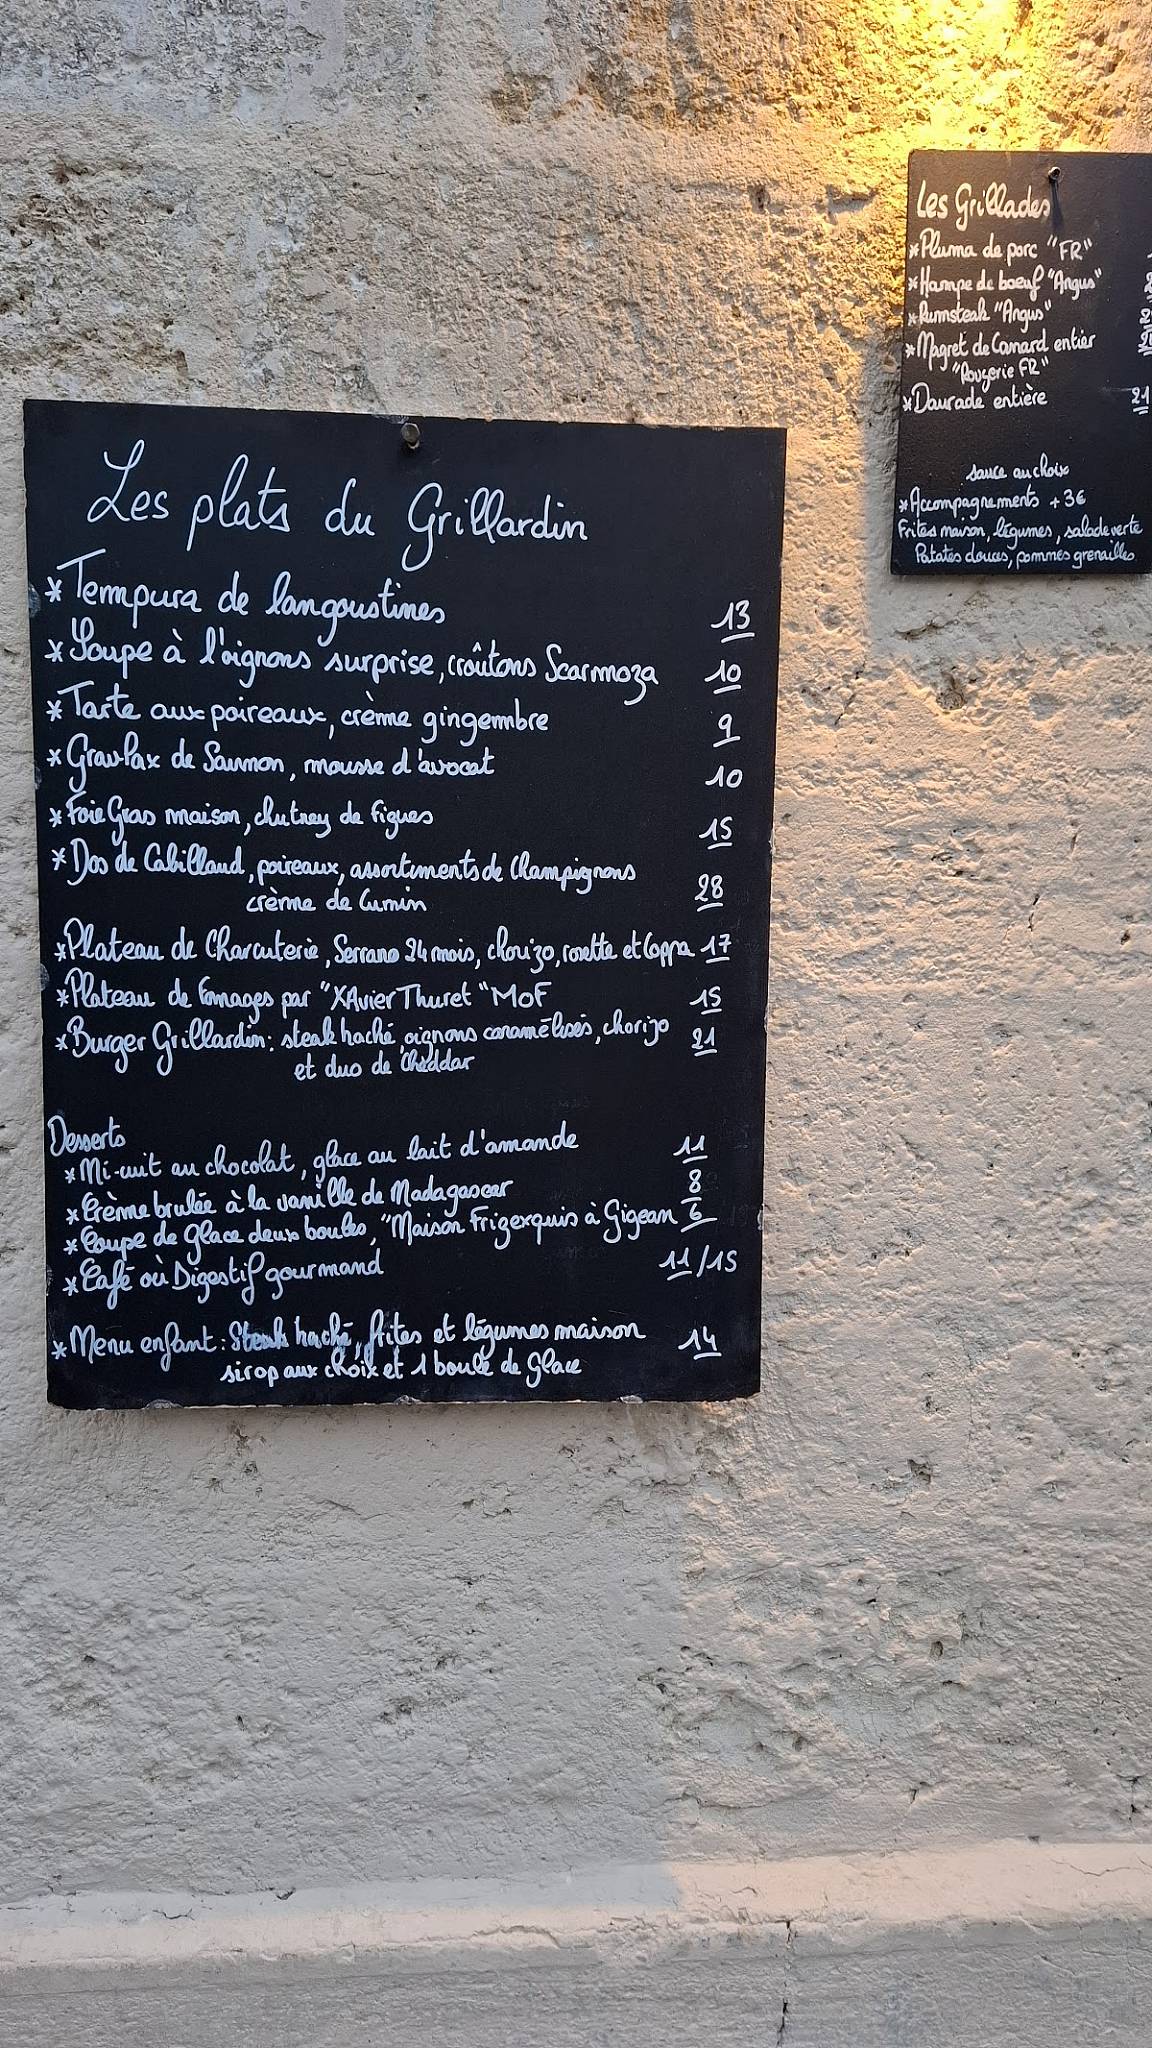 Les plats du Grillardin
* Tempura de langoustines 13
* Soupe à l'oignons surprise, croûtons Scarmoza 10
* Tarte aux poireaux, crème gingembre 9
* Gravlax de Saumon, mousse d'avocat 10
* Foie Gras maison, chutney de figues 15
* Dos de Cabillaud, poireaux, assortiments de Champignons 28
crème de Cumin
* Plateau de Charcuterie, Serrano 24 mois, chorizo, rosette et Coppa 17
* Plateau de Fromages par "XAvier Thuret "MoF 15
* Burger Grillardin: steak haché, oignons caramélisés, chorizo 21
et duo de Cheddar
Desserts
* Mi-cuit au chocolat, glace au lait d'amande 11
* Crème brulée à la vanille de Madagascar 8
* Coupe de glace deux boules, "Maison Frigexquis à Gigean 6
* Café où Digestif gourmand 11/15
* Menu enfant: Steak haché, frites et légumes maison 14
sirop aux choix et 1 boule de glace
Les Grillades
* Pluma de porc "FR"
* Hampe de boeuf "Angus"
* Rumsteak "Angus"
* Magret de Canard entier
"Rougerie FR"
* Daurade entière 21
sauce au choix
* Accompagnements +3€
Frites maison, légumes, salade verte
Patates douces, pommes grenailles